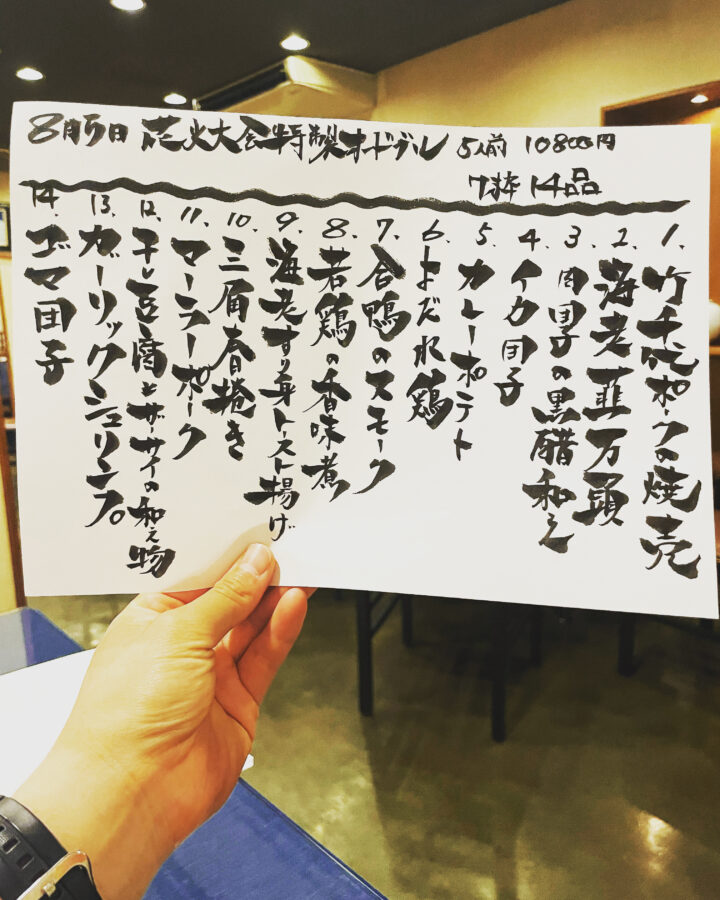 8月5日 花火大会特製オードブル 5人前 10800円
7枠 14品
1. 竹千代ポークの焼売
2. 海老韮万頭
3. 肉団子の黒醋和え
4. イカ団子
5. カレーポテト
6. よだれ鶏
7. 合鴨のスモーク
8. 若鶏の香味煮
9. 海老すり身トースト揚げ
10. 三角春捲き
11. マーラーポーク
12. 干し豆腐とザーサイの和え物
13. ガーリックシュリンプ。
14. ゴマ団子